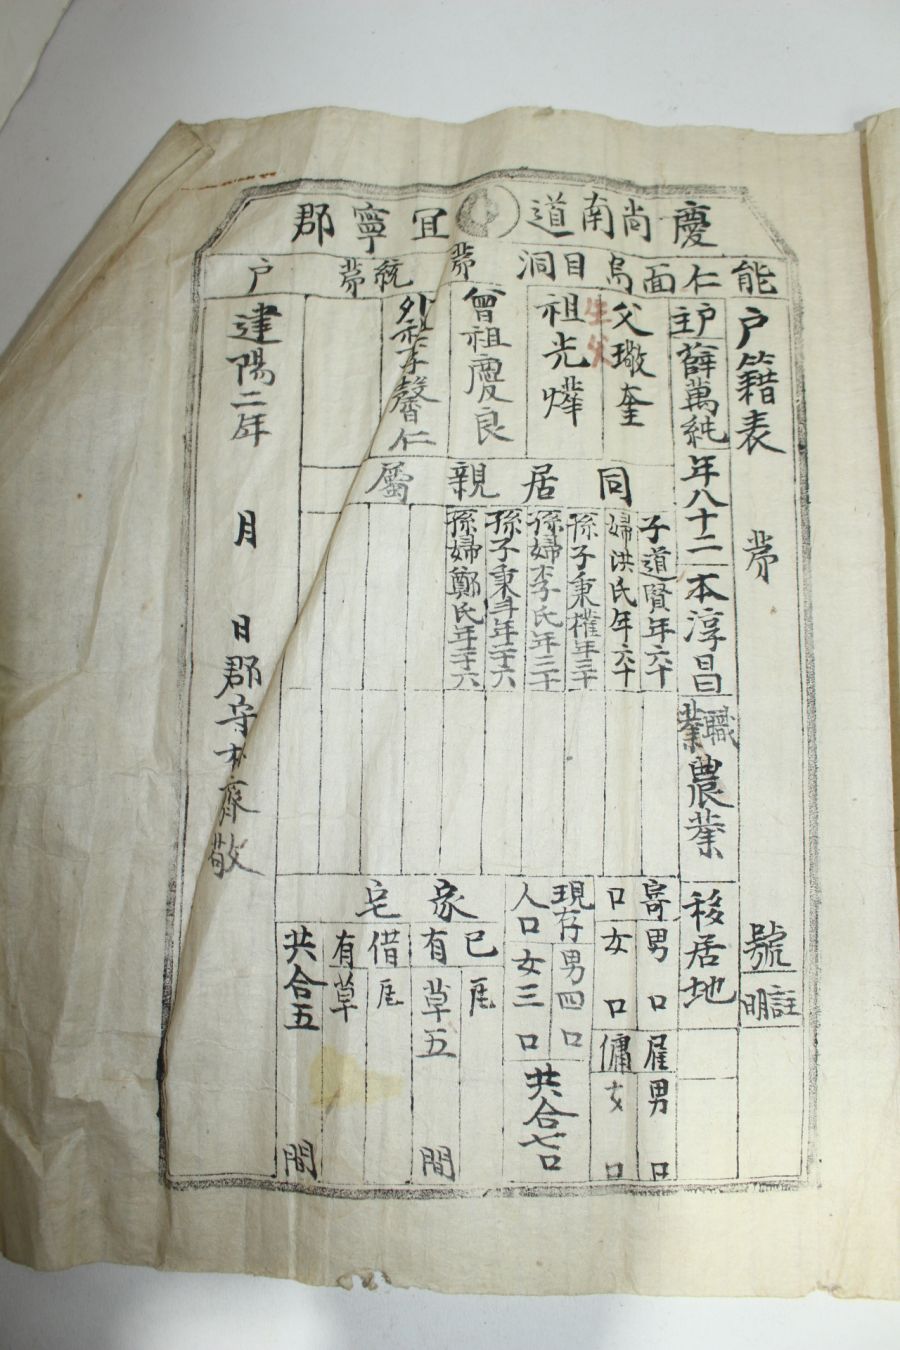 慶尚南道宜寧郡
能仁面烏目洞 第 統第 戶
戶籍表 第 號
註明
戶主 薛萬純 年八十二 本淳昌 職業 農業 移居地
父璥奎
生父
祖光燁
曾祖慶良
外祖李馨仁
同居親屬
子道賢年六十
婦洪氏年六十
孫子秉權年三十
孫婦李氏年三十
孫子秉 年二十六
孫婦鄭氏年二十六
寄 男 口 雇 男 口
口 女 口 傭 女 口
現存 男四口
人口 女三口
共合七口
家宅
已 瓦
有 草五 間
借 瓦
有 草
共合五 間
建陽二年 月 日郡守朴齊敬